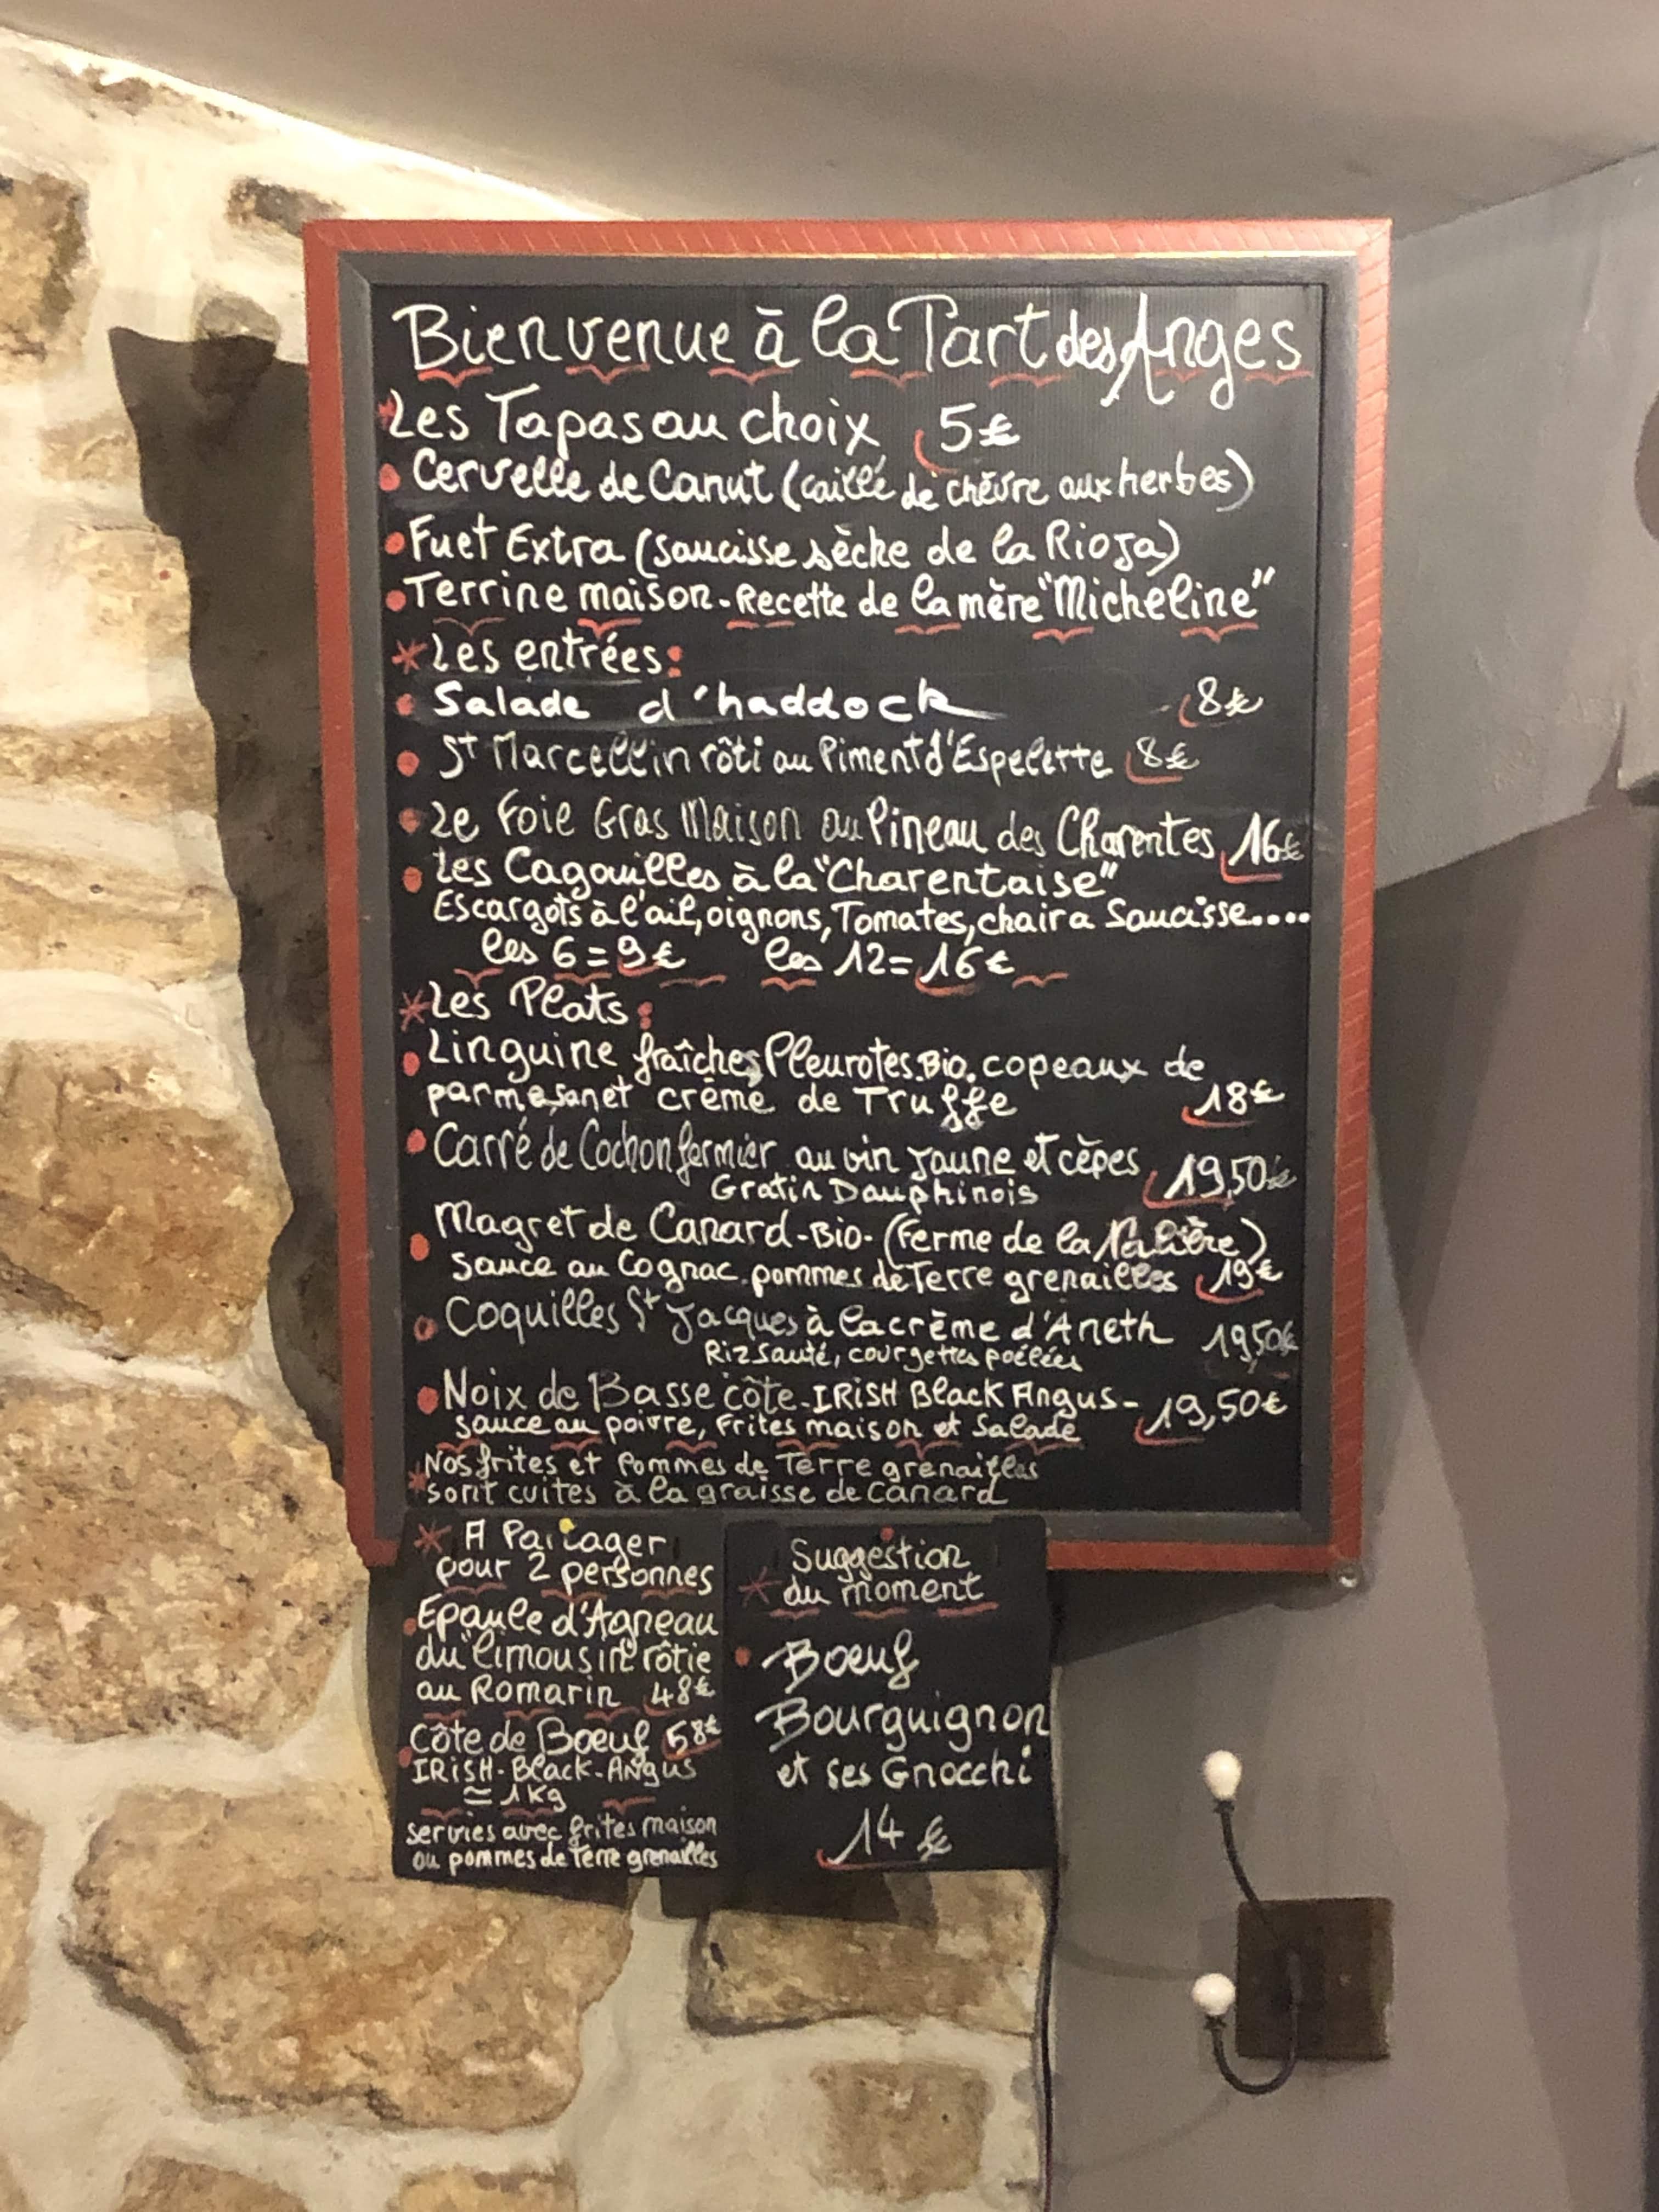 Bienvenue à la Tart des Anges
Les Tapas au choix 5€
Cervelle de Canut (caillé de chèvre aux herbes)
Fuet Extra (saucisse sèche de la Rioja)
Terrine maison - Recette de la mère "Micheline"
* Les entrées :
Salade d'haddock 8€
St Marcellin rôti au Piment d'Espelette 8€
Le Foie Gras Maison au Pineau des Charentes 16€
Les Cagouilles à la "Charentaise"
Escargots à l'ail, oignons, Tomates, chair a Saucisse....
les 6 = 9€ les 12 = 16€
* Les Plats :
Linguine fraîches, Pleurotes. Bio. copeaux de
parmesan et crème de Truffe 18€
Carré de Cochon fermier au vin jaune et cèpes 19,50€
Gratin Dauphinois
Magret de Canard - Bio - (Ferme de la)
sauce au Cognac. pommes de Terre grenailles 19€
Coquilles St Jacques à la crème d'Aneth 19,50€
Riz Sauté, courgettes poêlées
Noix de Basse côte - IRISH Black Angus - 19,50€
sauce au poivre, Frites maison et Salade
* Nos frites et Pommes de Terre grenailles
sont cuites à la graisse de canard
* A Partager
pour 2 personnes
Epaule d'Agneau
du "limousin" rôtie
au Romarin 48€
Côte de Boeuf 58€
IRISH - Black - Angus
≃ 1 Kg
servies avec frites maison
ou pommes de Terre grenailles
Suggestion
* du moment
Boeuf
Bourguignon
et ses Gnocchi
14 €